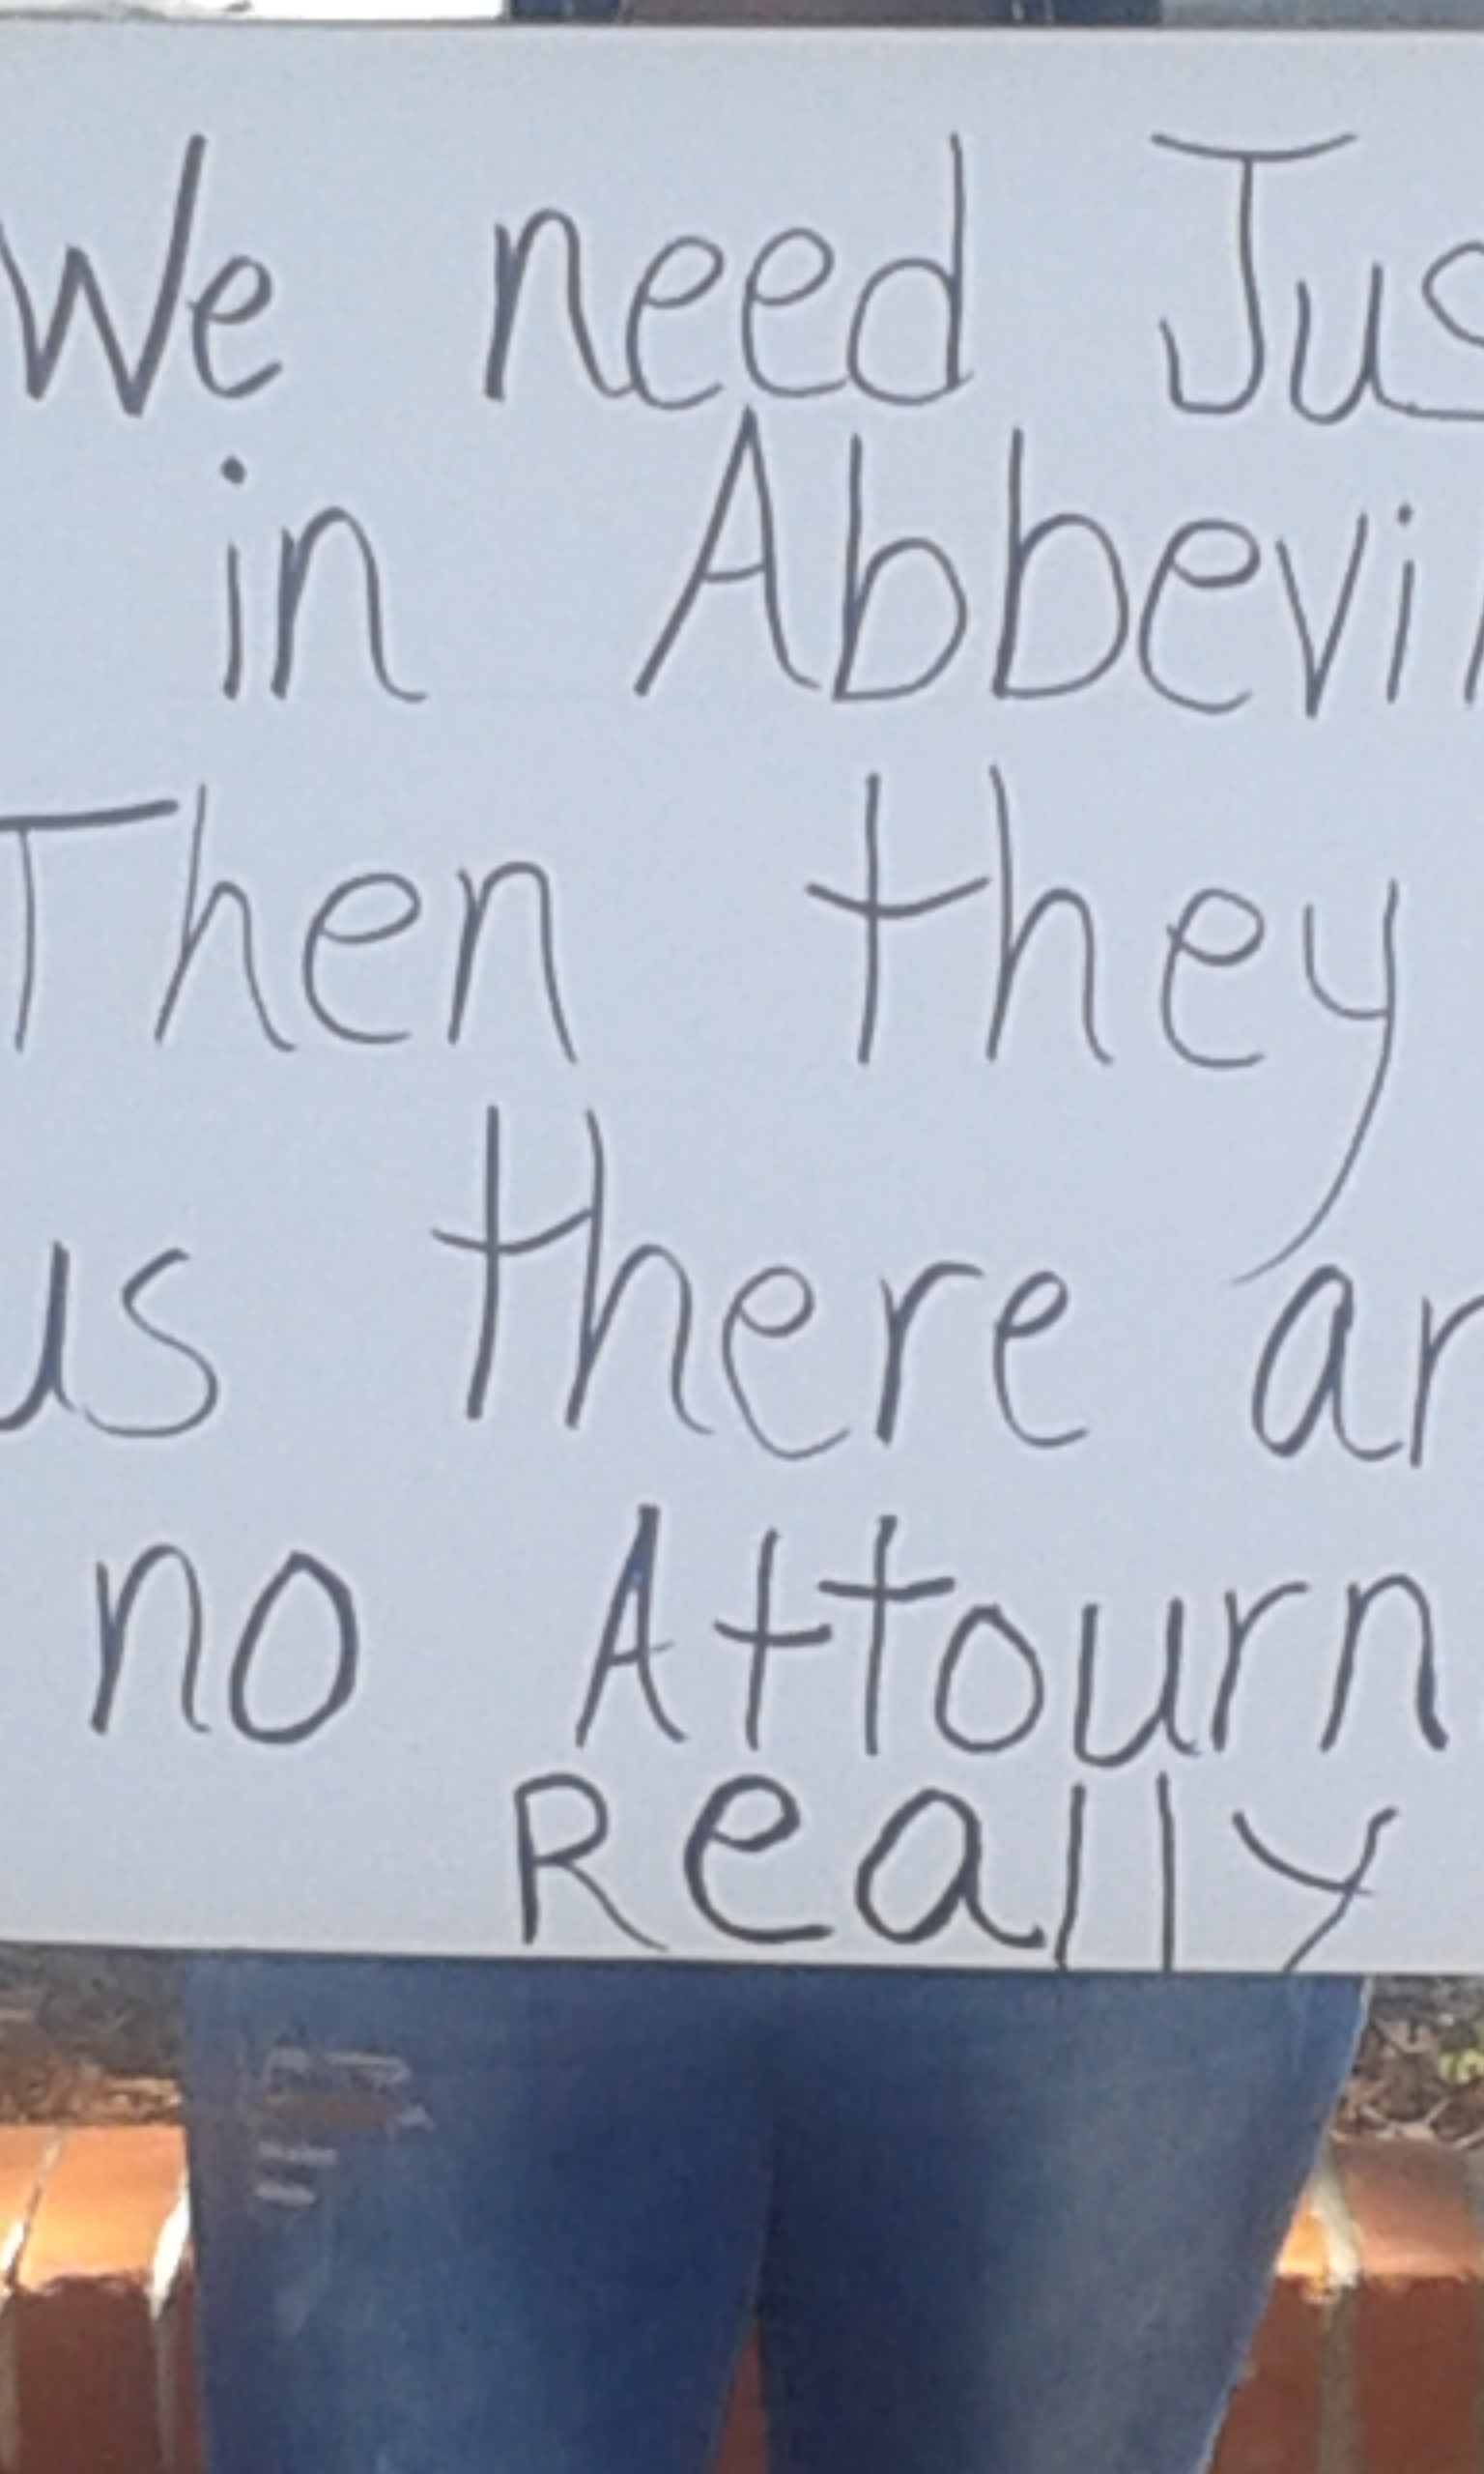 We need Jus
in Abbevil
Then they
us there ar
no Attourn
Really